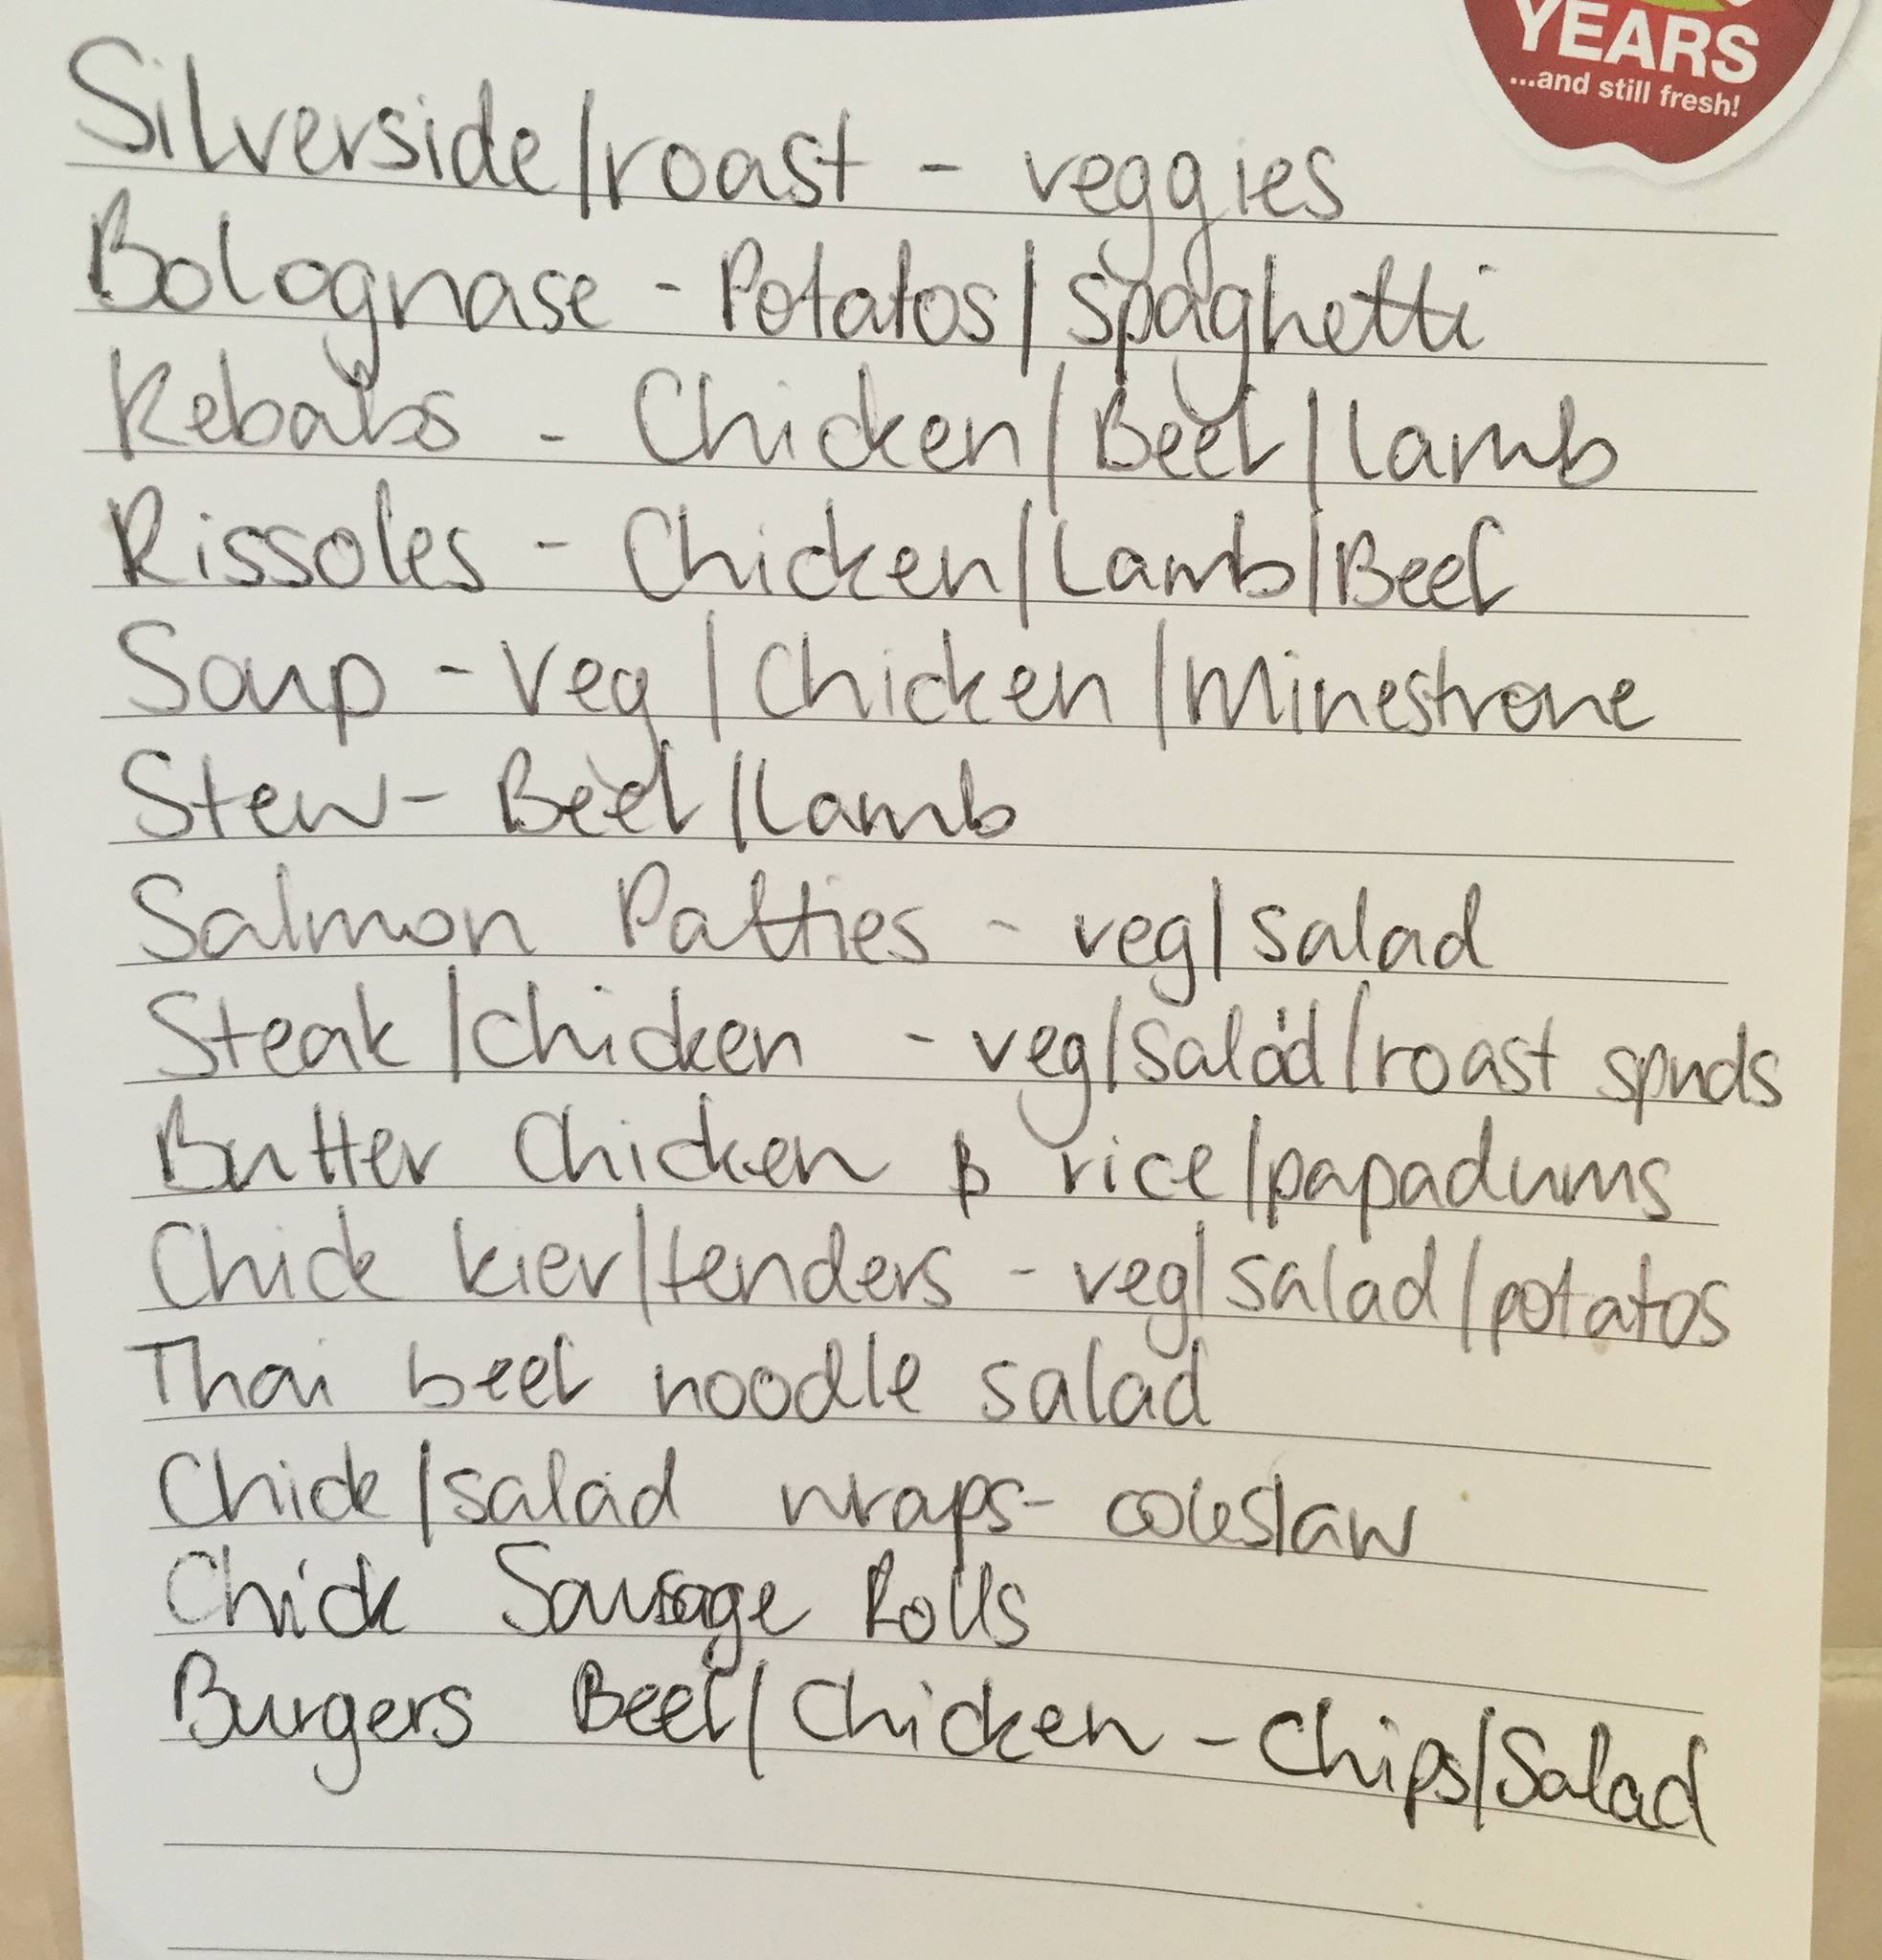 YEARS
...and still fresh!
Silverside/roast - veggies
Bolognase - Potatos/Spaghetti
Kebabs - Chicken/Beef/Lamb
Rissoles - Chicken/Lamb/Beef
Soup - Veg/Chicken/Minestrone
Stew - Beef/Lamb
Salmon Patties - veg/salad
Steak/chicken - veg/salad/roast spuds
Butter Chicken & rice/papadums
Chick kier/tenders - veg/salad/potatos
Thai beef noodle salad
Chick/salad wraps - coleslaw
Chick Sausage Rolls
Burgers Beef/Chicken - Chips/Salad